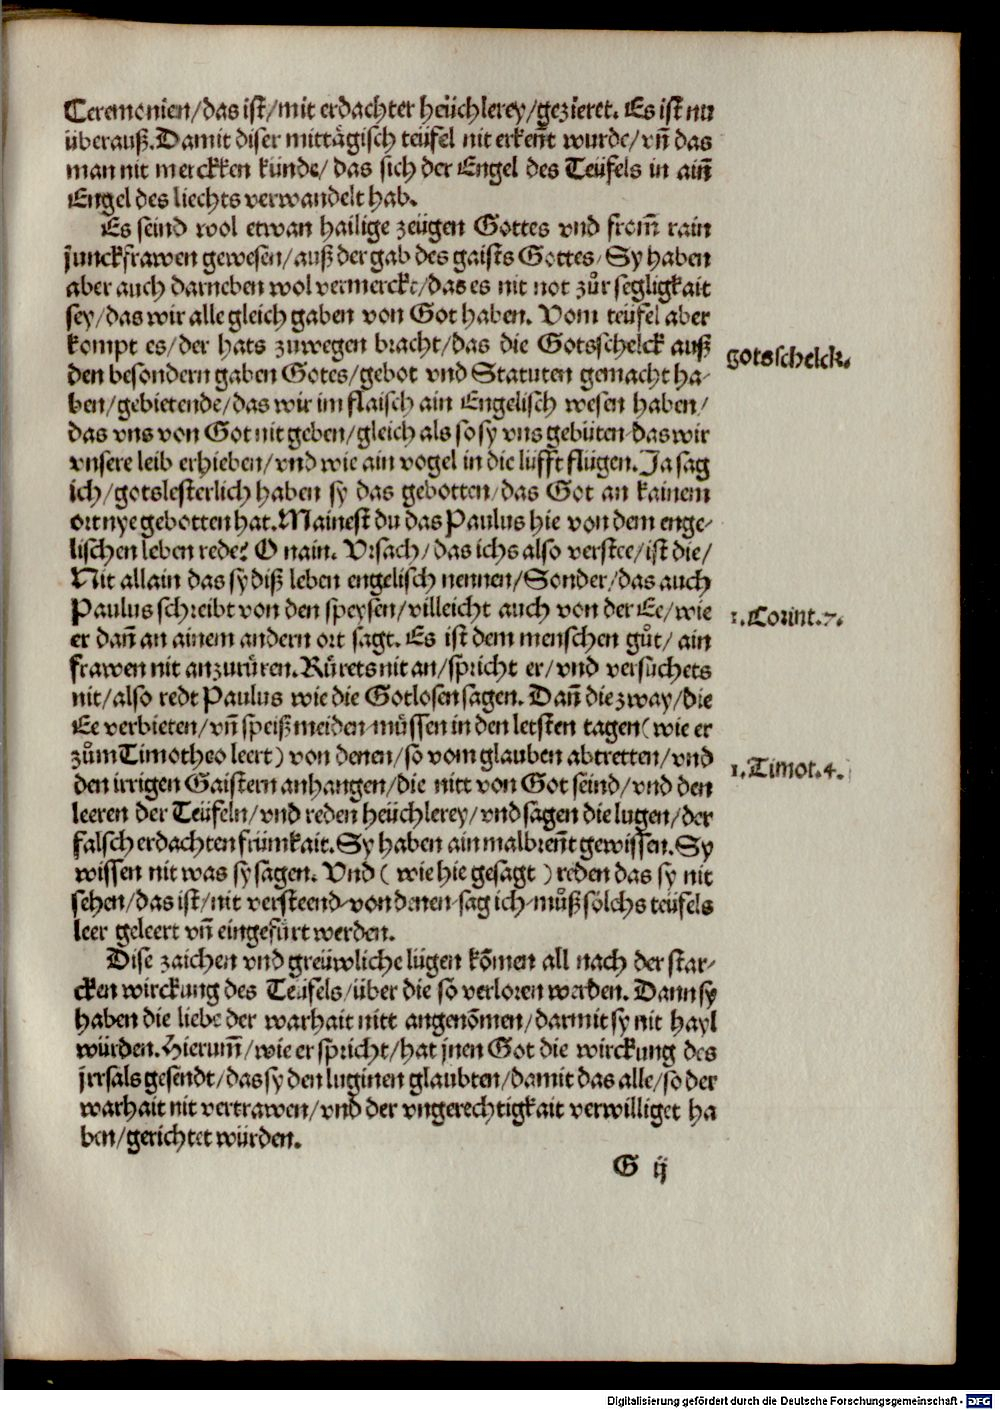 Ceremonien/das ist/mit erdachter heüchlerey/gezieret. Es ist nu
überauß. Damit diser mittägisch teüfel nit erkeñt wurde/vñ das
man nit merckken künde/das sich der Engel des Teüfels in aiñ
Engel des liechts verwandelt hab.
Es seind wol etwan hailige zeügen Gottes vnd from̃ rain
junckfrawen gewesen/auß der gab des gaists Gottes/Sy haben
aber auch darneben wol vermerckt/das es nit not zůr segligkait
sey/das wir alle gleich gaben von Got haben. Vom teüfel aber
kompt es/der hats zuwegen bracht/das die Gotsschelck auß
gotsschelck.
den besondern gaben Gotes/gebot vnd Statuten gemacht ha⸗
ben/gebietende/das wir im flaisch ain Engelisch wesen haben/
das vns von Got nit geben/gleich als so sy vns gebüten das wir
vnsere leib erhieben/vnd wie ain vogel in die lüfft flügen. Ja sag
ich/gotslesterlich haben sy das gebotten/das Got an kainem
ort nye gebotten hat. Mainest du das Paulus hie von dem enge⸗
lischen leben rede? O nain. Vrsach/das ichs also verstee/ist die/
Nit allain das sy diß leben engelisch nennen/Sonder/das auch
Paulus schreibt von den speysen/villeicht auch von der Ee/wie
1. Corint. 7.
er dañ an ainem andern ort sagt. Es ist dem menschen gůt/ain
frawen nit anzurüren. Rürets nit an/spricht er/vnd versüchets
nit/also redt Paulus wie die Gotlosen sagen. Dañ die zway/die
Ee verbieten/vñ speiß meiden müssen in den letsten tagen (wie er
zům Timotheo leert) von denen/so vom glauben abtretten/vnd
1. Timot. 4.
den irrigen Gaistern anhangen/die nitt von Got seind/vnd den
leeren der Teüfeln/vnd reden heüchlerey/vnd sagen die lugen/der
falsch erdachten frümkait. Sy haben ain malbreñt gewissen. Sy
wissen nit was sy sagen. Vnd (wie hie gesagt) reden das sy nit
sehen/das ist/nit versteend von denen sag ich můß sölchs teüfels
leer geleert vñ eingefürt werden.
Dise zaichen vnd greüwliche lügen kōmen all nach der star⸗
cken wirckung des Teüfels/über die so verloren werden. Dann sy
haben die liebe der warhait nitt angenōmen/darmit sy nit hayl
würden. Hierum̃/wie er spricht/hat jnen Got die wirckung des
jrrsals gesendt/das sy den luginen glaubten/damit das alle/so der
warhait nit vertrawen/vnd der vngerechtigkait verwilliget ha
ben/gerichtet würden.
G ij
Digitalisierung gefördert durch die Deutsche Forschungsgemeinschaft - DFG